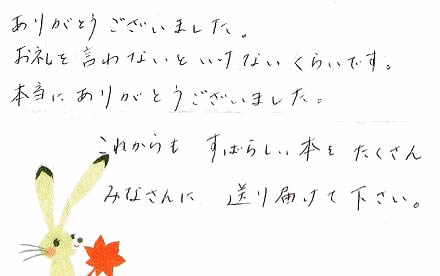 ありがとうございました。
お礼を言わないといけないくらいです。
本当にありがとうございました。
これからも すばらしい本を たくさん
みなさんに 送り届けて下さい。